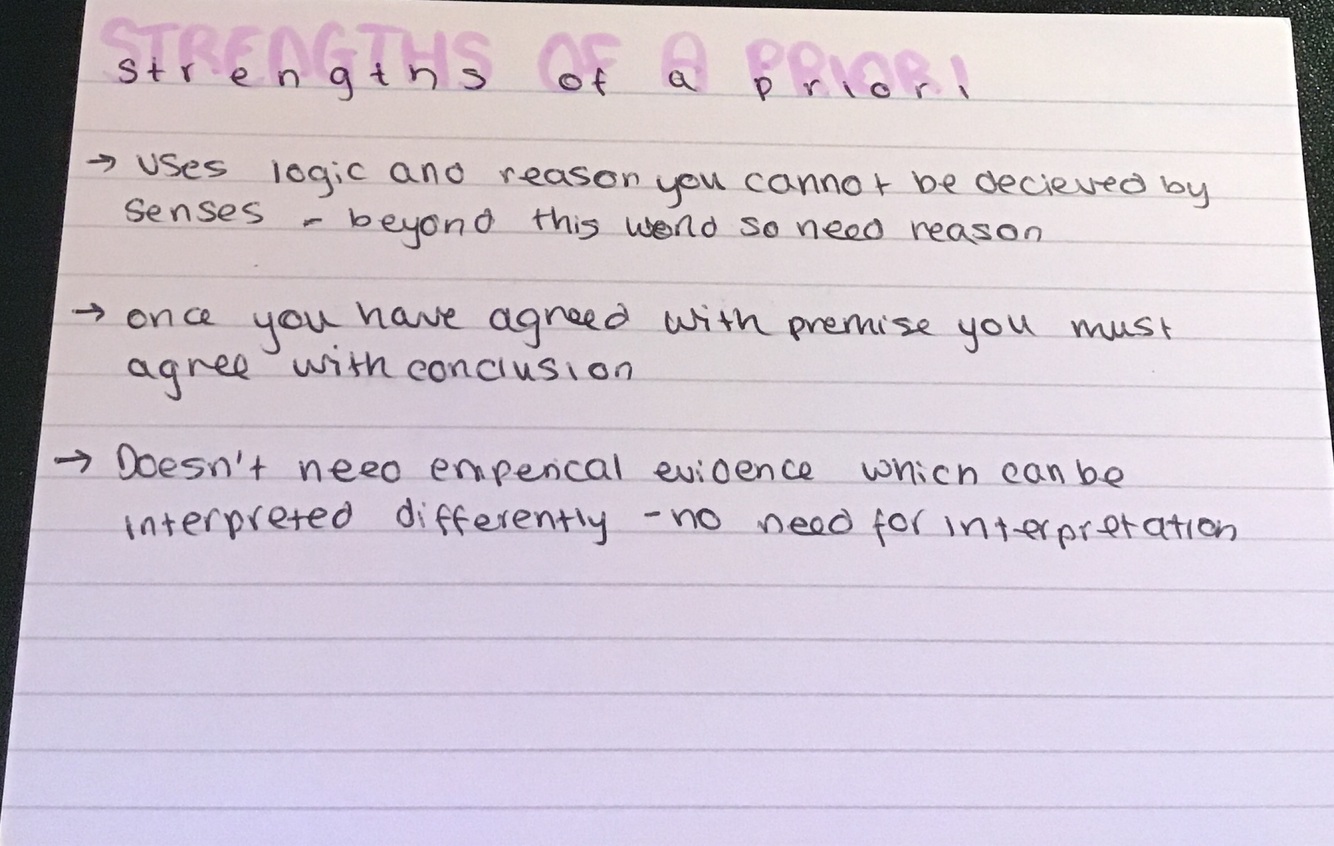 STRENGTHS OF A PRIORI
strengths of a priori
→ uses logic and reason you cannot be decieved by
senses - beyond this world so need reason
→ once you have agreed with premise you must
agree with conclusion
→ Doesn't need emperical evidence which can be
interpreted differently - no need for interpretation